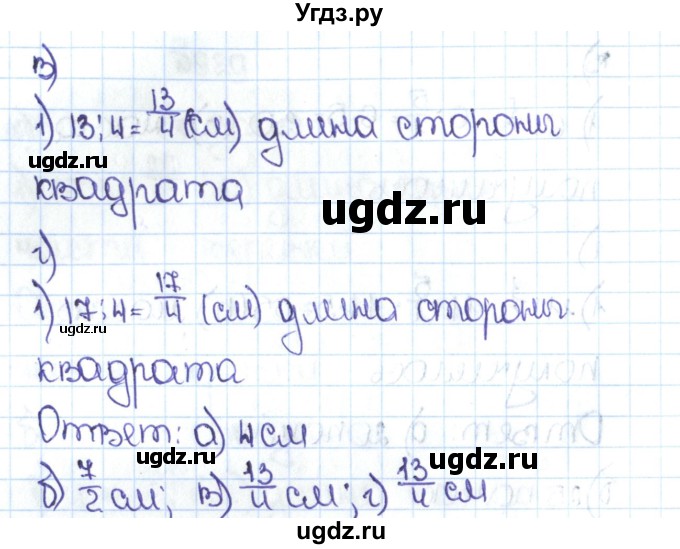 Угдз.ру
в)
1) 13:4=13/4 (см) длина стороны
ugdz.ru
ugdz.ru
квадрата
ugdz.ru
г)
1) 17:4=17/4 (см) длина стороны
ugdz.ru
ugdz.ru
квадрата
Ответ: а) 4 см
ugdz.ru
ugdz.ru
б) 7/2 см; в) 13/4 см; г) 13/4 см
ugdz.ru